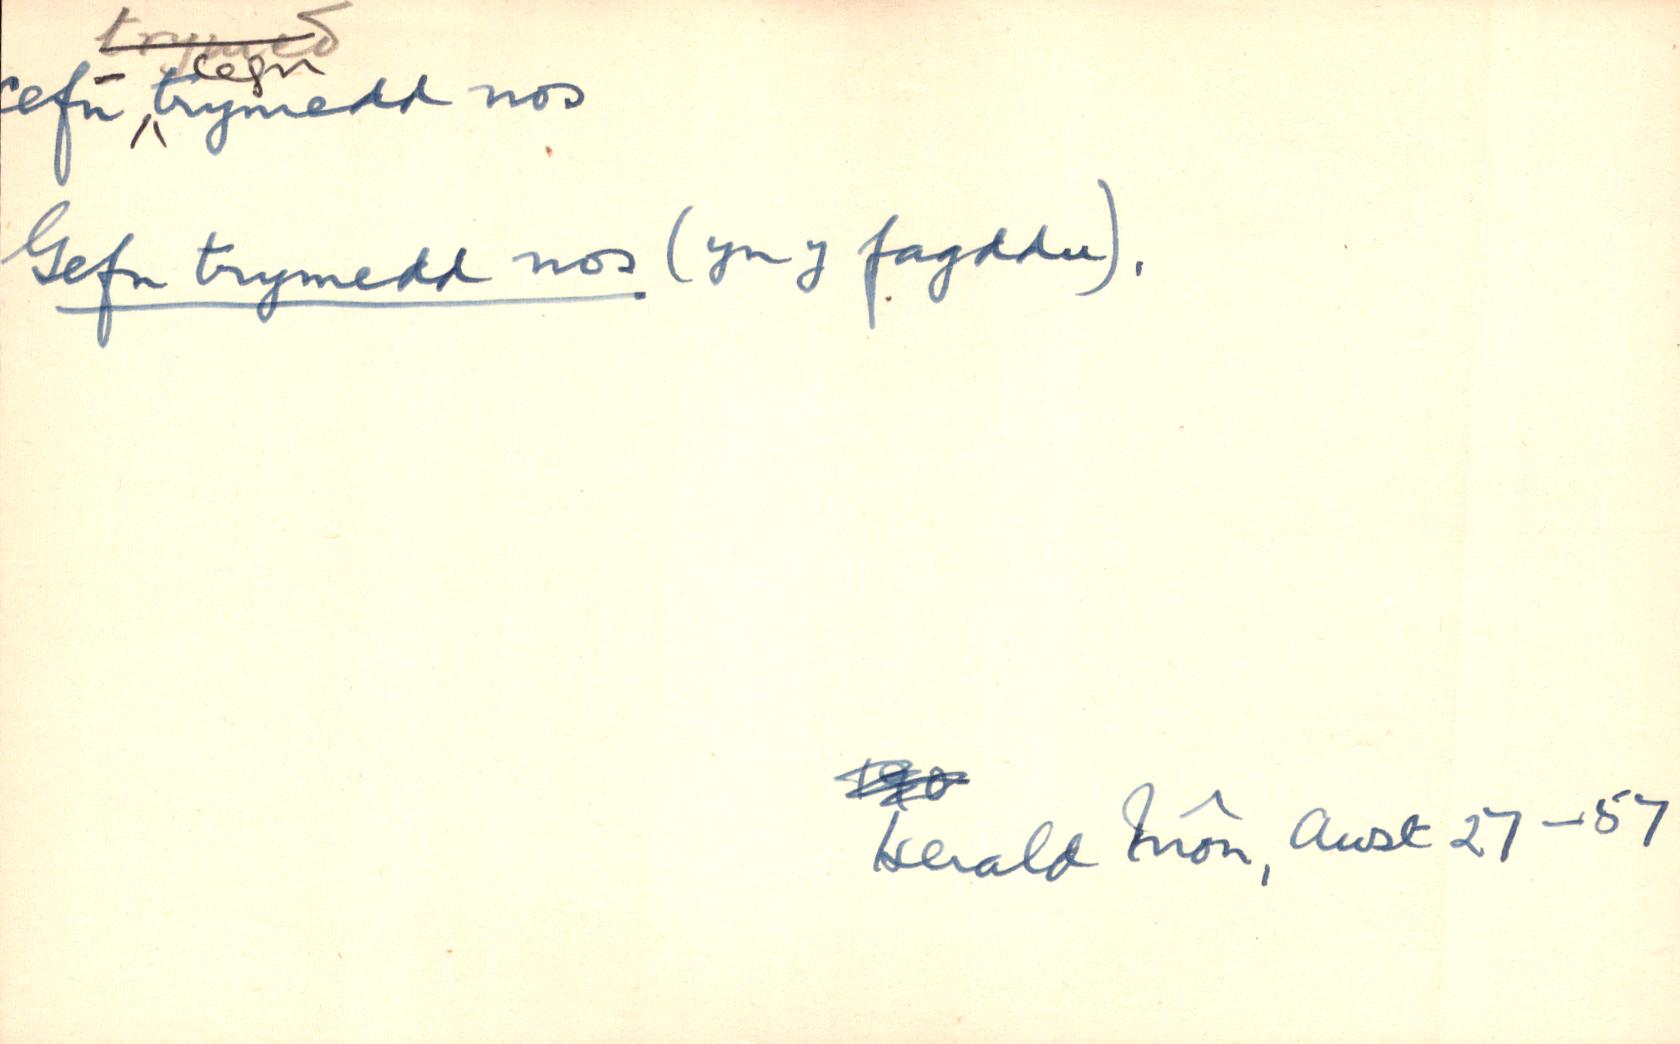 trymeð
cefn
cefn trymedd nos
Gefn trymedd nos (yn y fagddu).
Herald Môn, Awst 27-57